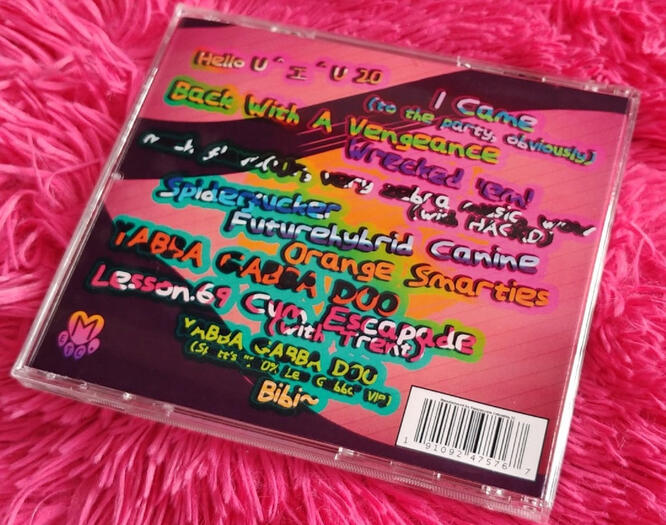 Hello U ´ 工 ` U 2.0
I Came
(to the party, obviously)
Back With A Vengeance
Wrecked 'em!
very zebra music wow
(with HAC D)
Spiderfucker
Futurehybrid Canine
Orange Smarties
YABBA GABBA DOO
Lesson.69 Cum Escapade
(with Trent)
YABBA GABBA DOO
VIP)
Bibi~
M
1 91092 47576 7